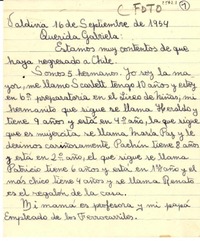 ( FOTO )
Valdivia 16 de Septiembre de 1954
Querida Gabriela:
Estamos muy contentos de que
haya regresado a Chile.
Somos 5 hermanos. Yo soy la ma
yor, me llamo Scarlett tengo 10 años y estoy
en 6º preparatoria en el Liceo de Niñas, mi
hermanito que sigue se llama Heraldo y
tiene 9 años y está en 4º año, la que sigue
que es mujercita se llama María Paz y le
decimos cariñosamente Pachín tiene 8 años
y está en 2º año, el que sigue se llama
Patricio tiene 6 años y está en 1º año y el
más chico tiene 4 años y se llama Renato
es el regalón de la casa.
Mi mamá es profesora y mi papá
Empleado de los Ferrocarriles.